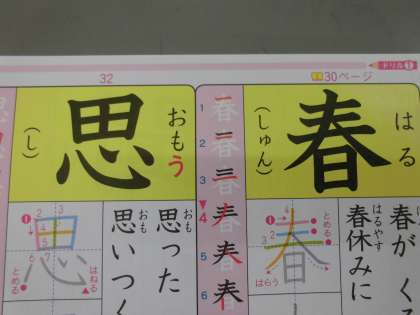 ドリル1
30ページ
32
春
はる
(しゅん)
1
2
3
4
5
6
春がくる
春休みに
はるやす
とめる
はらう
思
おもう
(し)
思った
おも
思いつく
おも
とめる
はねる